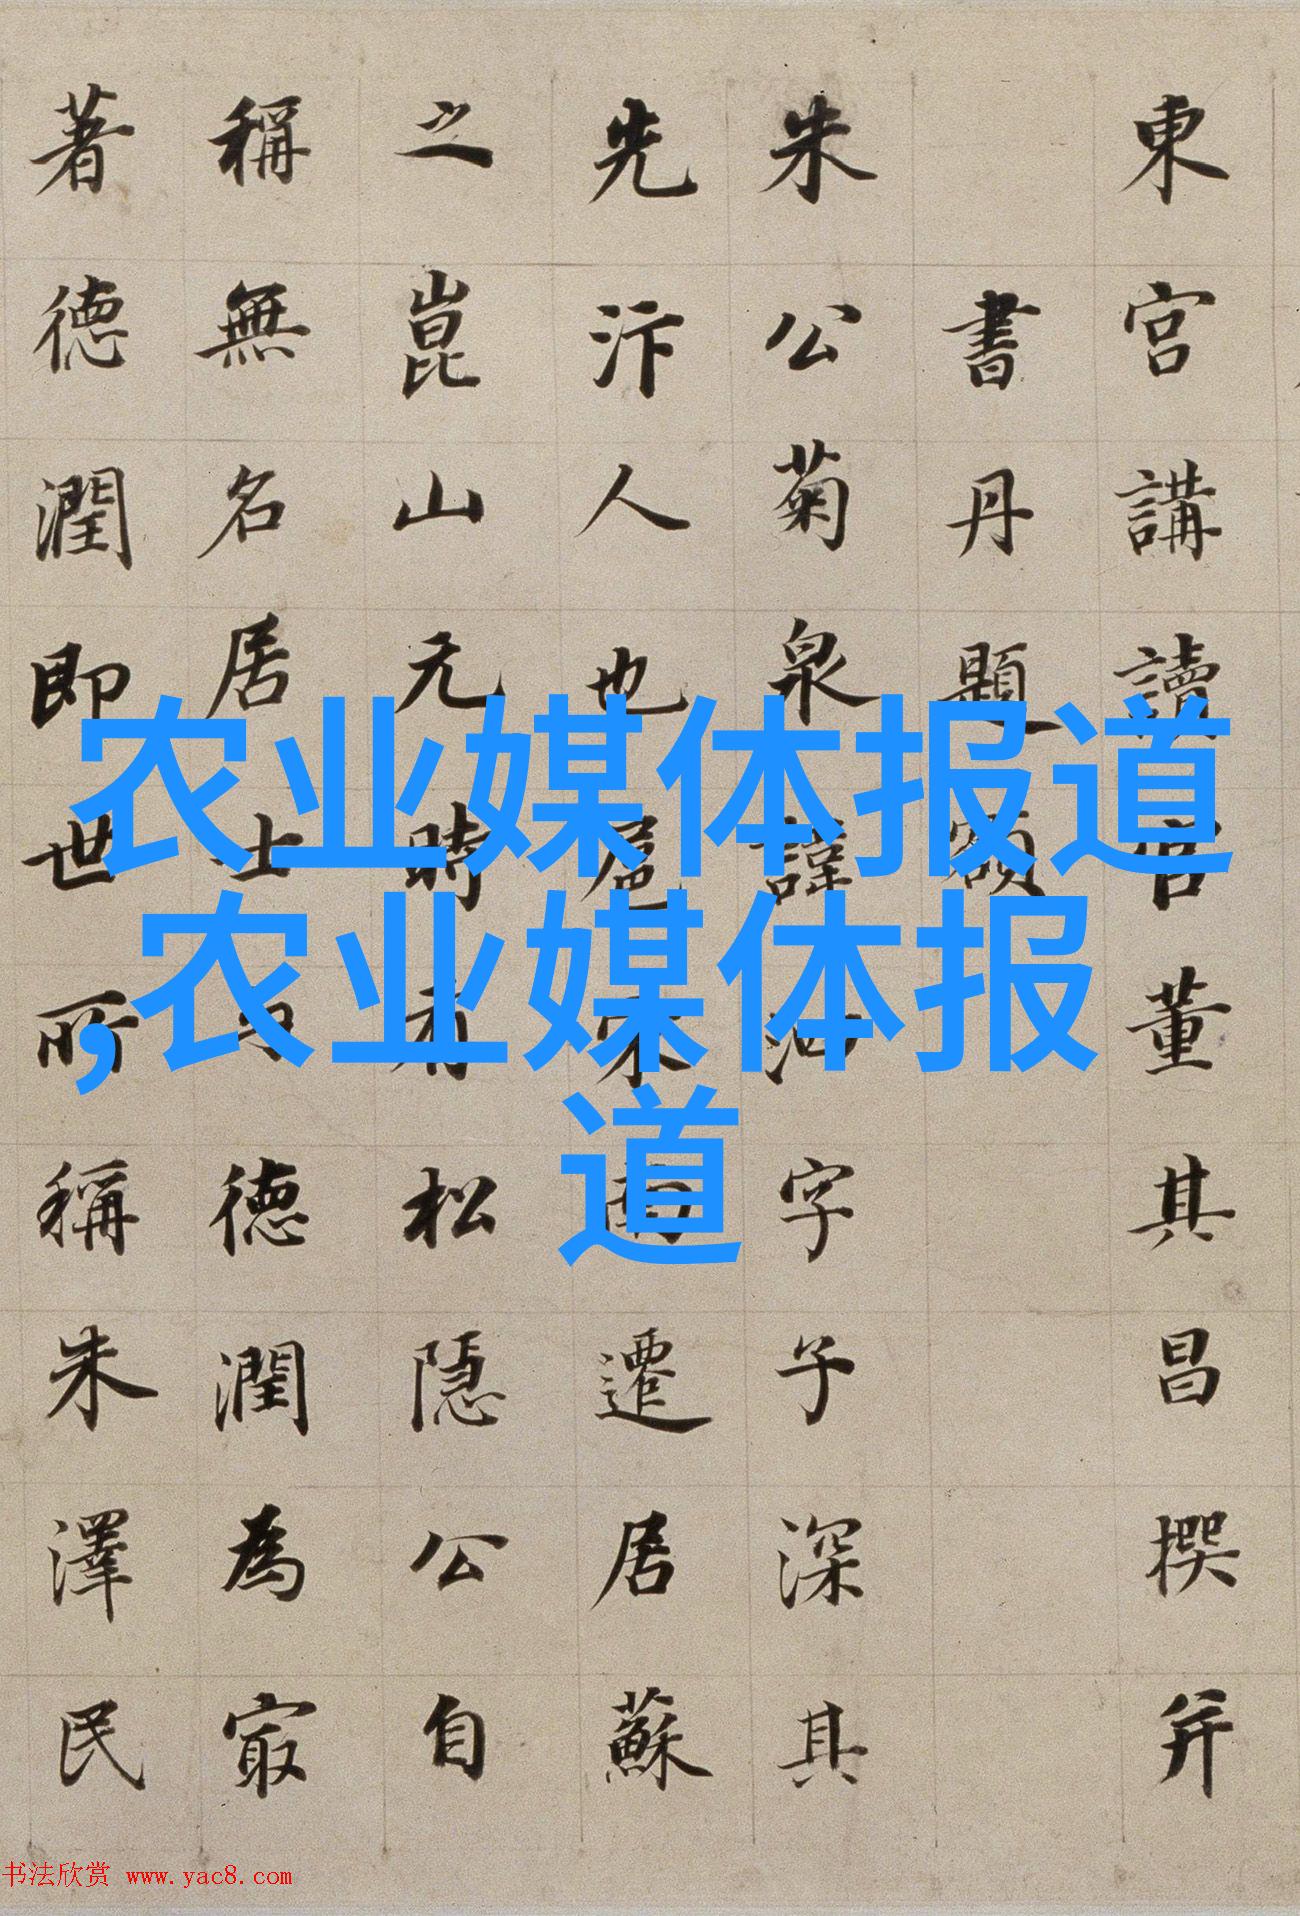 東宮講讀官董其昌撰并
書丹題額
朱公菊泉諱字子深其
先汴人也扈宋南遷居蘇
之崑山元時有松隱公自
稱無名居士德潤為寂
著德潤即世所稱朱澤民
农业媒体报道
,农业媒体报
道
书法欣赏 www.yac8.com